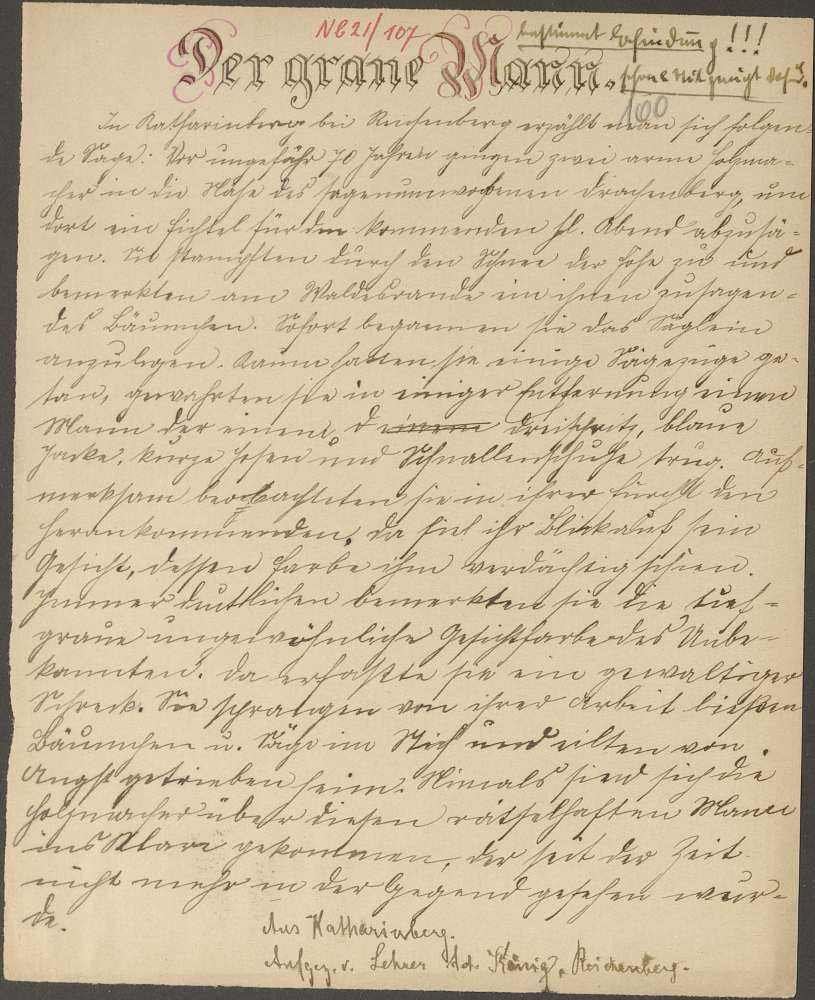 NB 21/107
bestimmt !!!
Der graue Mann.
100
In Katharinberg bei Reichenberg erzählt man sich folgen-
de Sage: Vor ungefähr 70 Jahren gingen zwei arme Holzma-
cher in die Nähe des sagenumwobenen Drachenberg, um
dort ein Fichtel für den kommenden hl. Abend abzusä-
gen. Sie stampften durch den Schnee der Höhe zu und
bemerkten am Waldesrande ein ihnen zusagen-
des Bäumchen. Sofort begannen sie das Säglein
anzulegen. Kaum hatten sie einige Sägezüge ge-
tan, gewahrten sie in einiger Entfernung einen
Mann der einen Dreispitz, blaue
Jacke, kurze Hosen und Schnallenschuhe trug. Auf-
merksam beobachteten sie in ihrer Furcht den
Herankommenden, da fiel ihr Blick auf sein
Gesicht, dessen Farbe ihm verdächtig schien.
Immer deutlicher bemerkten sie die tief-
graue ungewöhnliche Gesichtsfarbe des Unbe-
kannten. Da erfaßte sie ein gewaltiger
Schreck. Sie sprangen von ihrer Arbeit ließen
Bäumchen u. Säge im Stich und eilten von
Angst getrieben heim. Niemals sind sich die
Holzmacher über diesen rätselhaften Mann
ins Klare gekommen, der seit der Zeit
nicht mehr in der Gegend gesehen wur-
de.
Aus Katharinberg.
Aufgez. v. Lehrer Ad. König, Reichenberg.